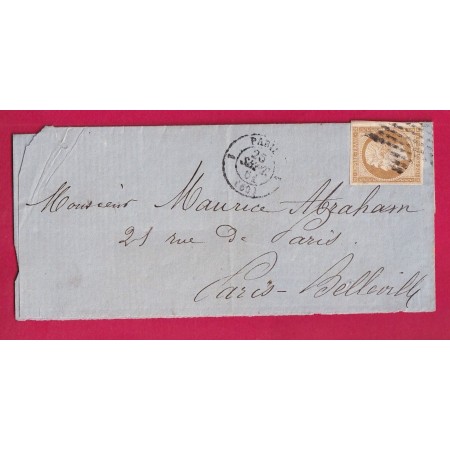 PARIS
25
SEPT.
(60)
Monsieur Maurice Abraham
21 rue de Paris.
Paris-Belleville